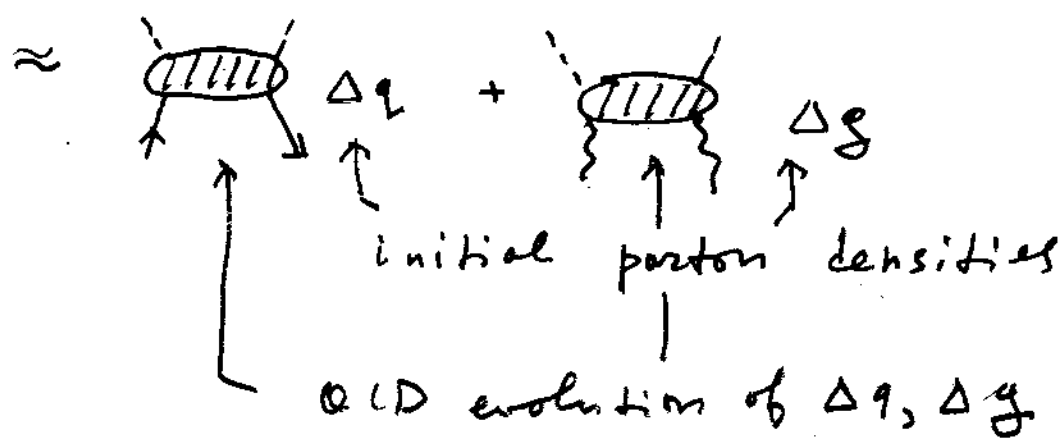 ≈ Δq + Δg
initial parton densities
QCD evolution of Δq, Δg